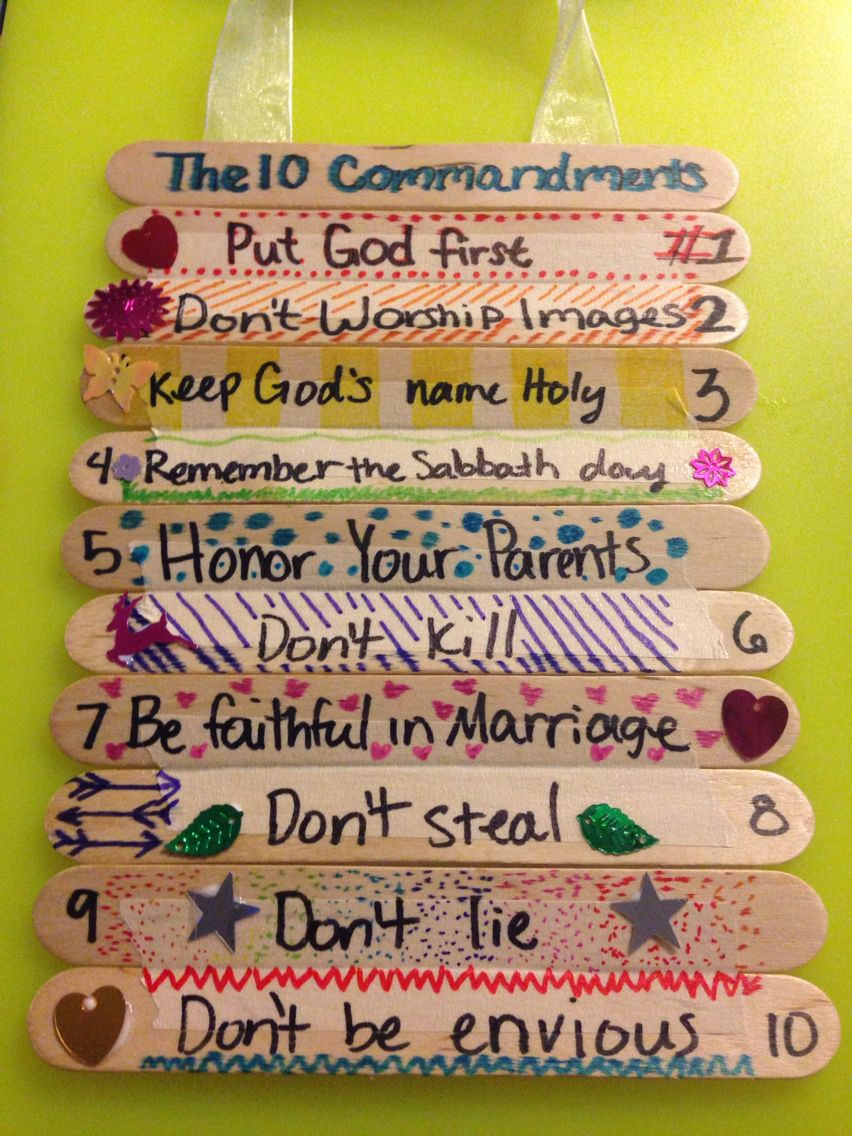 The 10 Commandments
Put God first #1
Don't Worship Images 2
Keep God's name Holy 3
4 Remember the Sabbath day
5 Honor Your Parents
Don't Kill 6
7 Be faithful in Marriage
Don't steal 8
9 Don't lie
Don't be envious 10